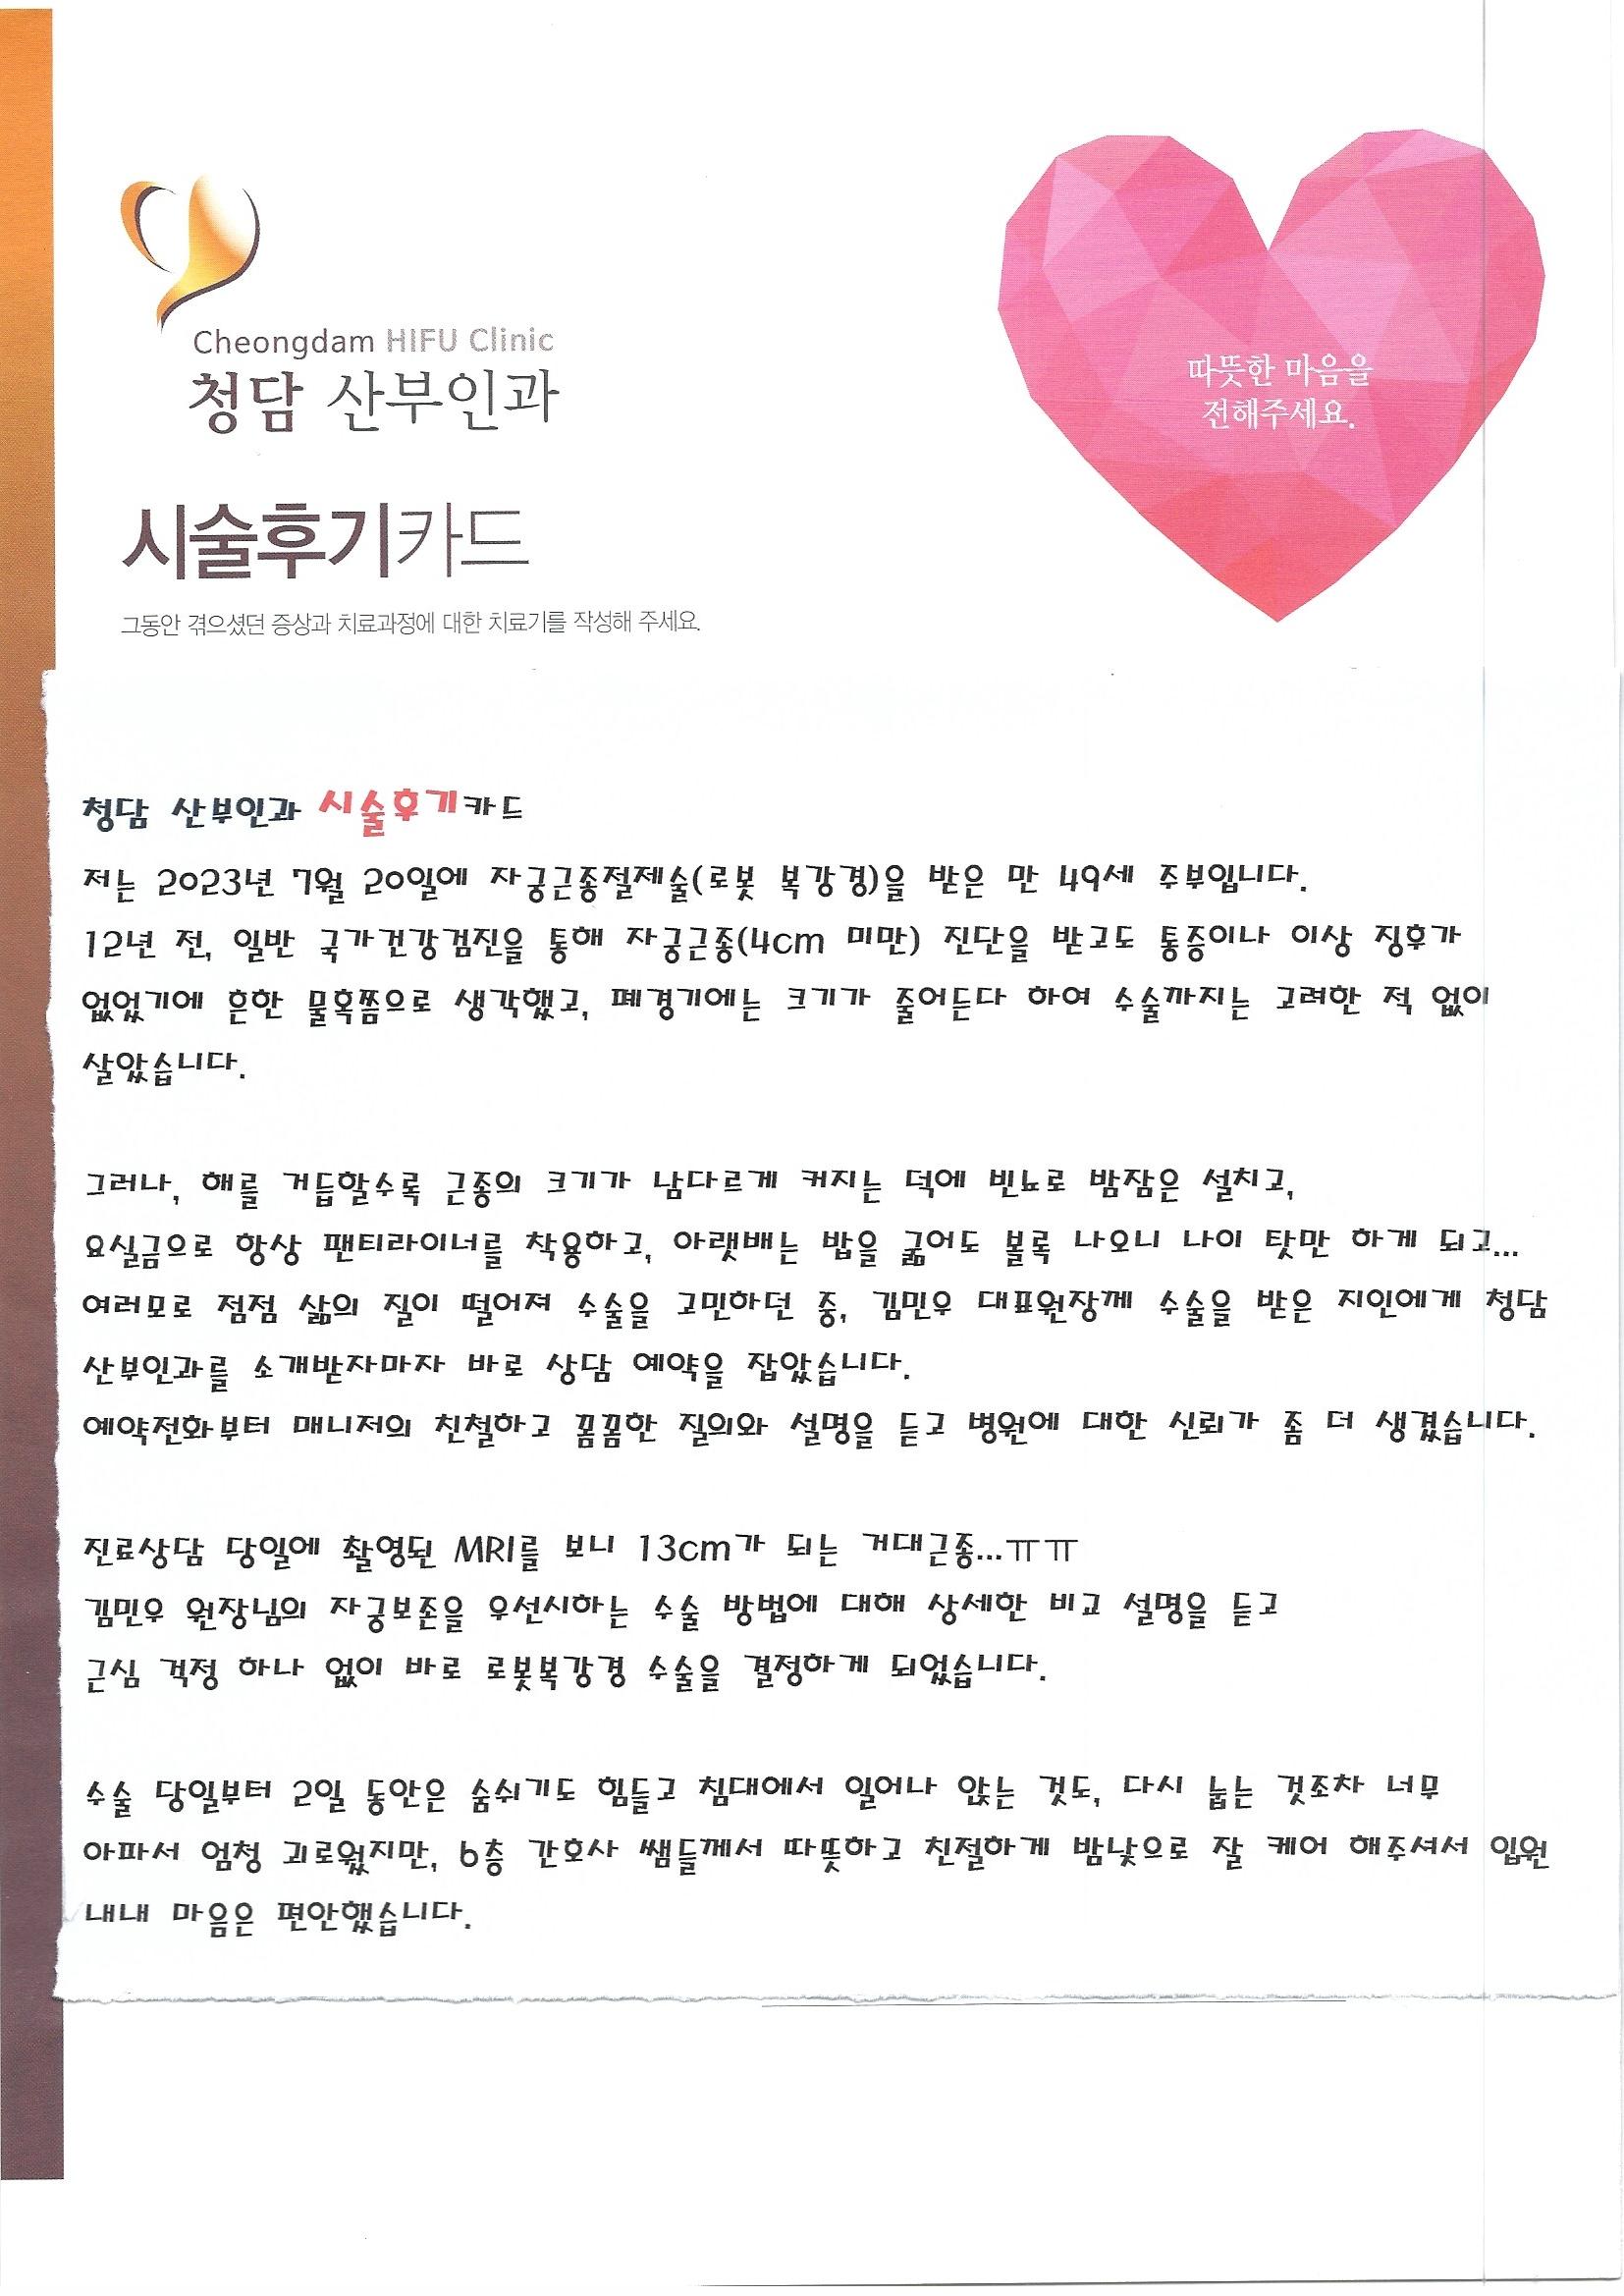 Cheongdam HIFU Clinic
청담 산부인과
따뜻한 마음을
전해주세요.
시술후기카드
그동안 겪으셨던 증상과 치료과정에 대한 치료기를 작성해 주세요.
청담 산부인과 시술후기카드
저는 2023년 7월 20일에 자궁근종절제술(로봇 복강경)을 받은 만 49세 주부입니다.
12년 전, 일반 국가건강검진을 통해 자궁근종(4cm 미만) 진단을 받고도 통증이나 이상 징후가
없었기에 흔한 물혹쯤으로 생각했고, 폐경기에는 크기가 줄어든다 하여 수술까지는 고려한 적 없이
살았습니다.
그러나, 해를 거듭할수록 근종의 크기가 남다르게 커지는 덕에 빈뇨로 밤잠은 설치고,
요실금으로 항상 팬티라이너를 착용하고, 아랫배는 밥을 굶어도 볼록 나오니 나이 탓만 하게 되고...
여러모로 점점 삶의 질이 떨어져 수술을 고민하던 중, 김민우 대표원장께 수술을 받은 지인에게 청담
산부인과를 소개받자마자 바로 상담 예약을 잡았습니다.
예약전화부터 매니저의 친철하고 꼼꼼한 질의와 설명을 듣고 병원에 대한 신뢰가 좀 더 생겼습니다.
진료상담 당일에 촬영된 MRI를 보니 13cm가 되는 거대근종...ㅠㅠ
김민우 원장님의 자궁보존을 우선시하는 수술 방법에 대해 상세한 비교 설명을 듣고
근심 걱정 하나 없이 바로 로봇복강경 수술을 결정하게 되었습니다.
수술 당일부터 2일 동안은 숨쉬기도 힘들고 침대에서 일어나 앉는 것도, 다시 눕는 것조차 너무
아파서 엄청 괴로웠지만, 6층 간호사 쌤들께서 따뜻하고 친절하게 밤낮으로 잘 케어 해주셔서 입원
내내 마음은 편안했습니다.